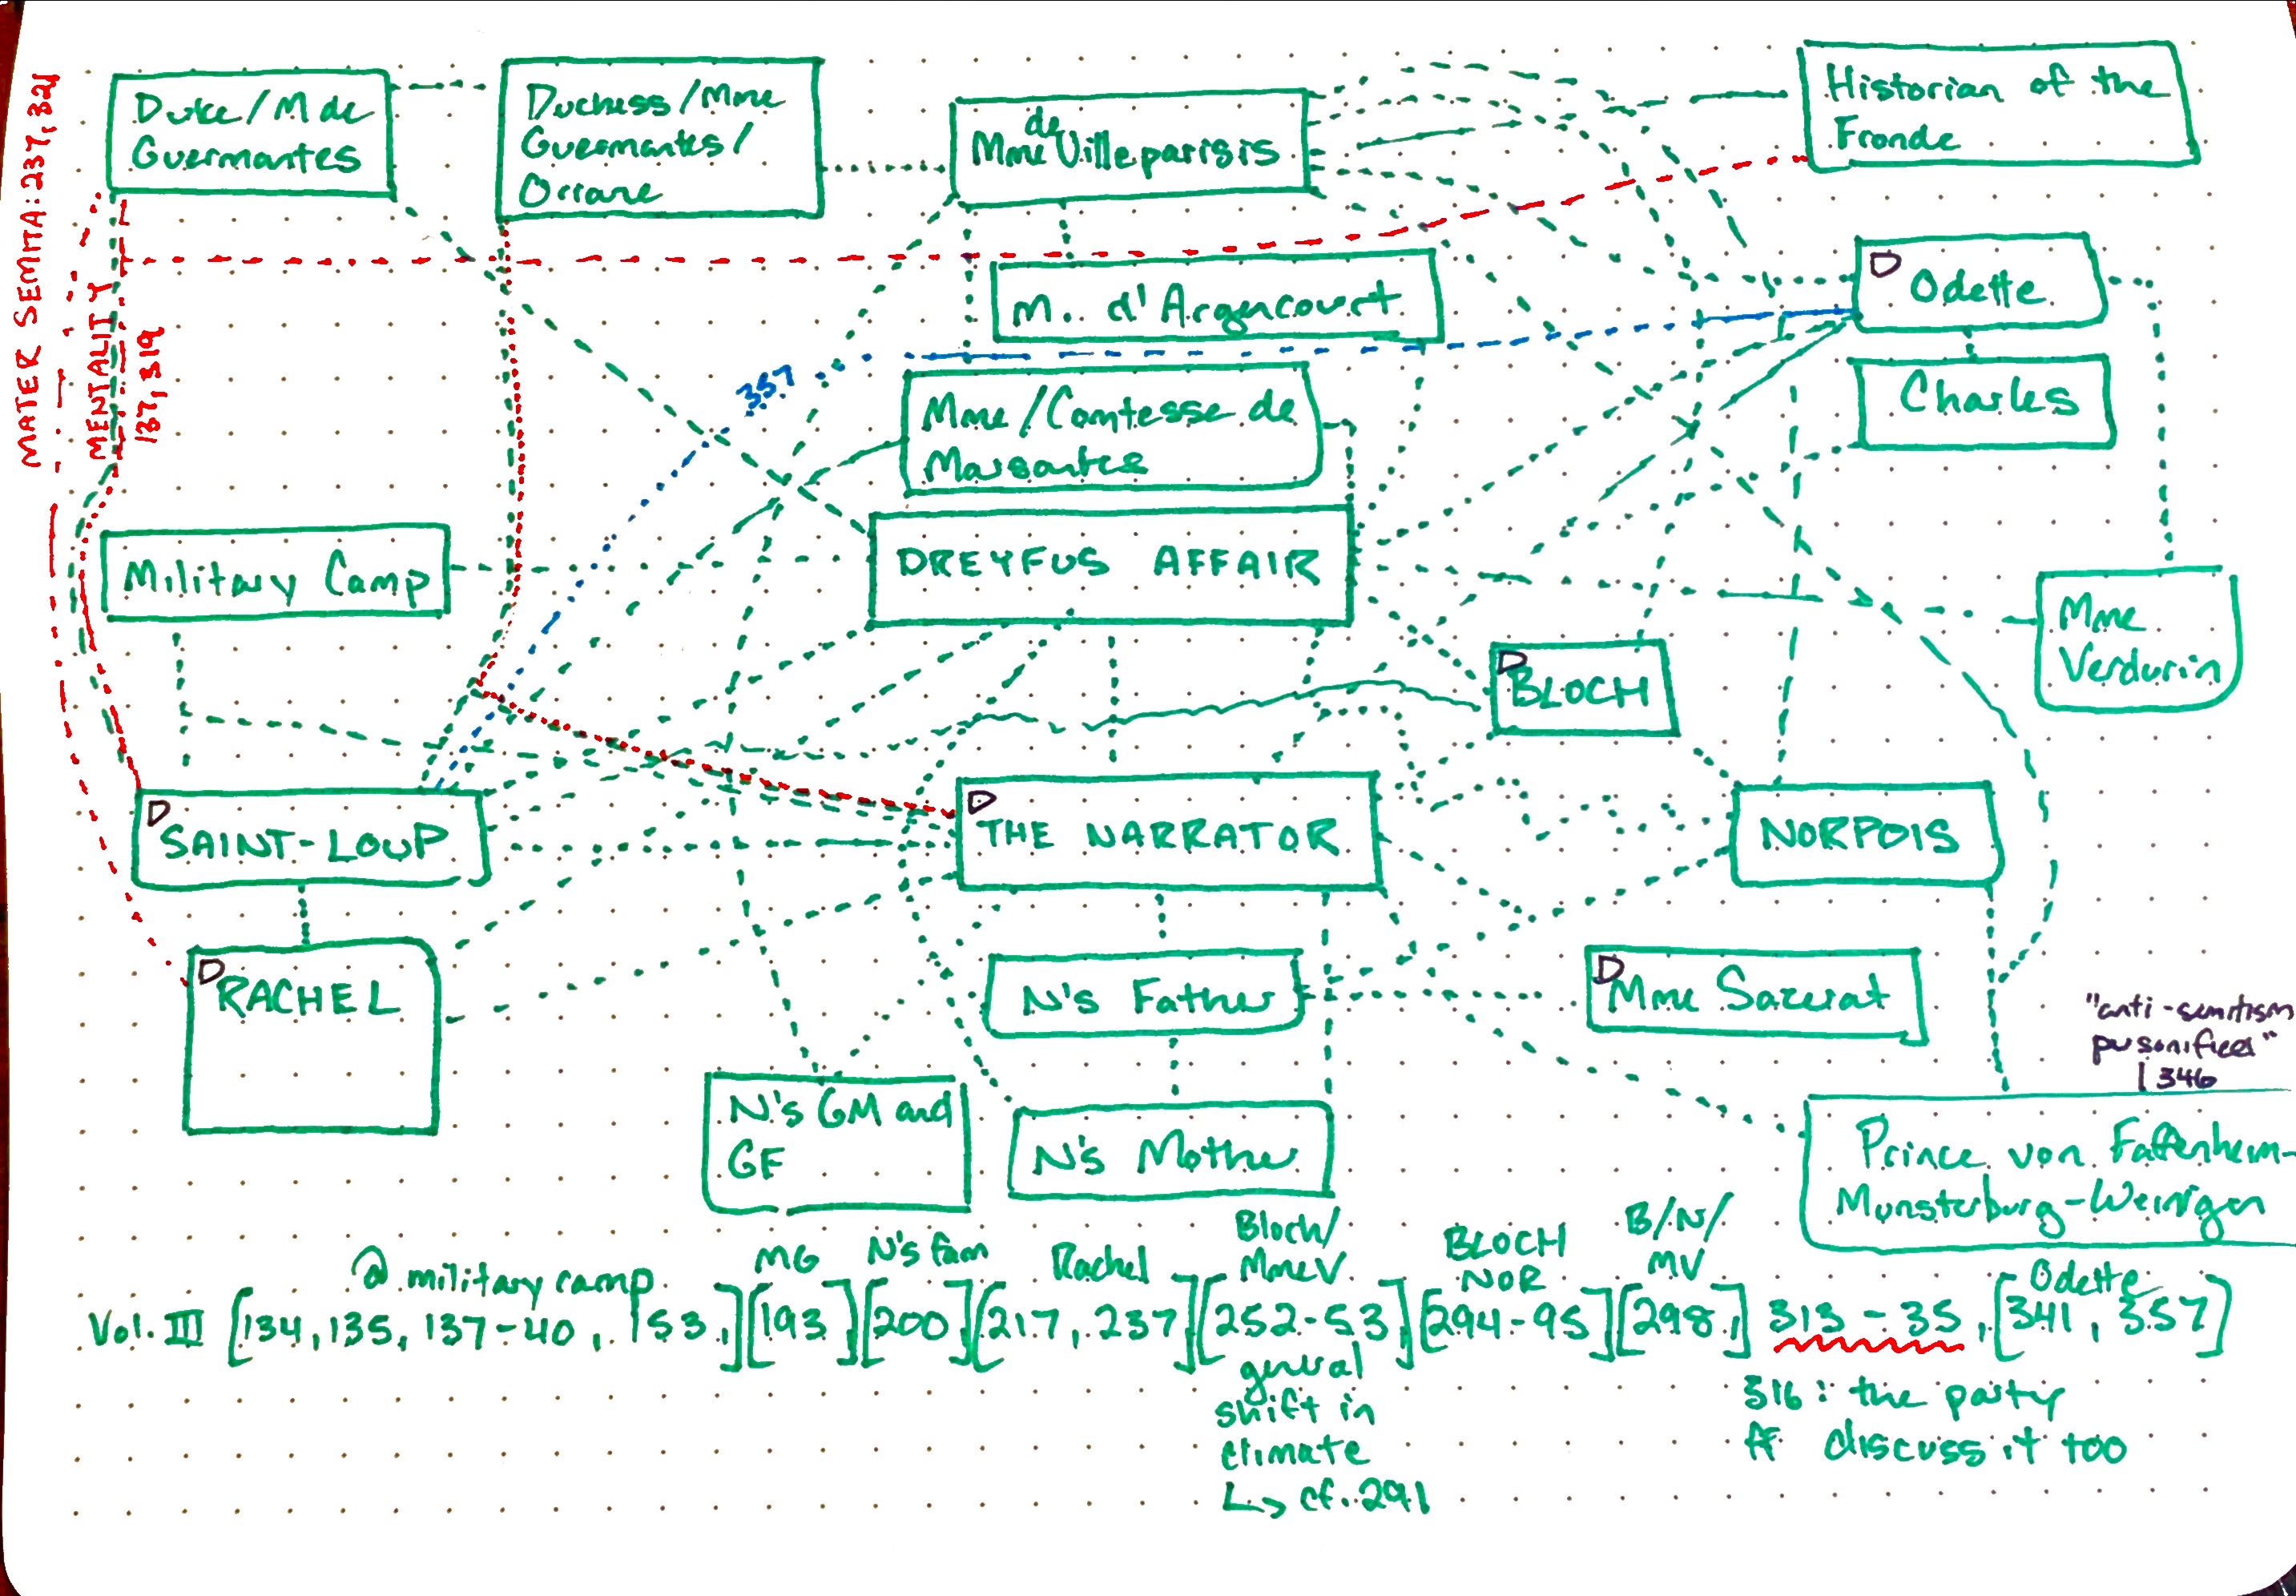 MATER SEMITA: 237, 321
MENTALITY
137, 319
Duke/M de
Guermantes
Duchess/Mme
Guermantes/
Oriane
de
Mme Villeparisis
Historian of the
Fronde
M. d'Argencourt
D Odette
Charles
357
Mme/Comtesse de
Marsantes
Military Camp
DREYFUS AFFAIR
Mme
Verdurin
D BLOCH
D SAINT-LOUP
D THE NARRATOR
NORPOIS
D RACHEL
N's Father
D Mme Sazerat
"anti-semitism
personified"
346
N's GM and
GF
N's Mother
Prince von Faffenheim-
Munsterburg-Weinigen
@ military camp
MG
N's fam
Rachel
Bloch/
Mme V.
BLOCH
NOR
B/N/
MV
Odette
Vol. III [134, 135, 137-40, 153,] [193] [200] [217, 237] [252-53] [294-95] [298,] 313-35, [341, 357]
general
shift in
climate
↳ cf. 291
316: the party
ff discuss it too